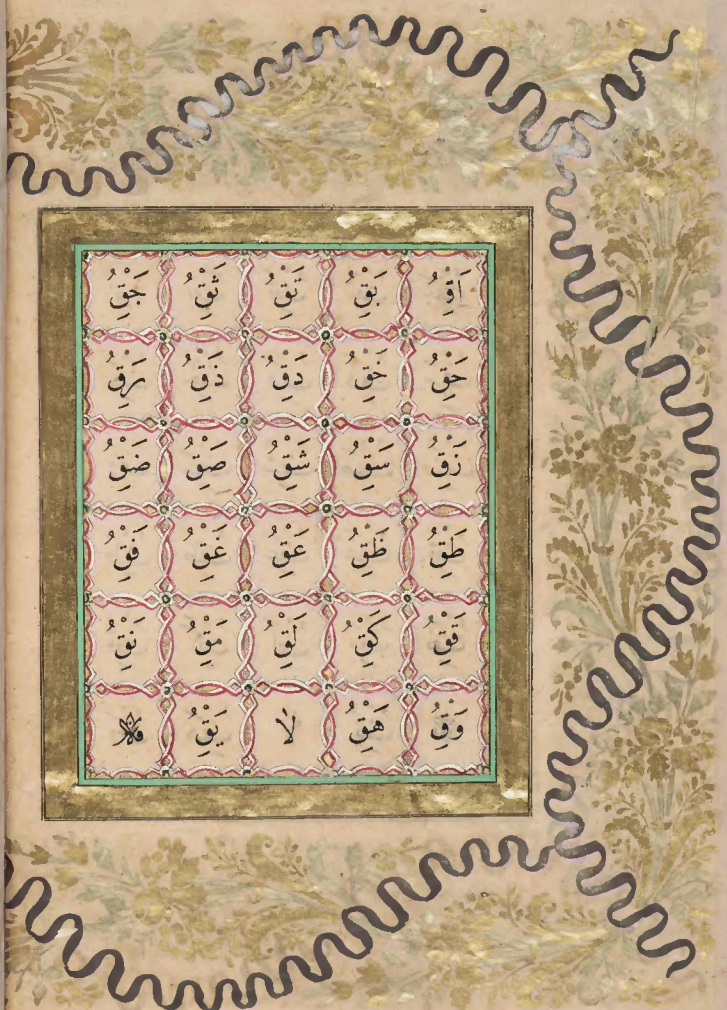 اَقِْ بَقِْ تَقِْ ثَقِْ جَقِْ
حَقِْ خَقِْ دَقِْ ذَقِْ رَقِْ
زَقِْ سَقِْ شَقِْ صَقِْ ضَقِْ
طَقِْ ظَقِْ عَقِْ غَقِْ فَقِْ
قَقِْ كَقِْ لَقِْ مَقِْ نَقِْ
وَقِْ هَقِْ لا يَقِْ